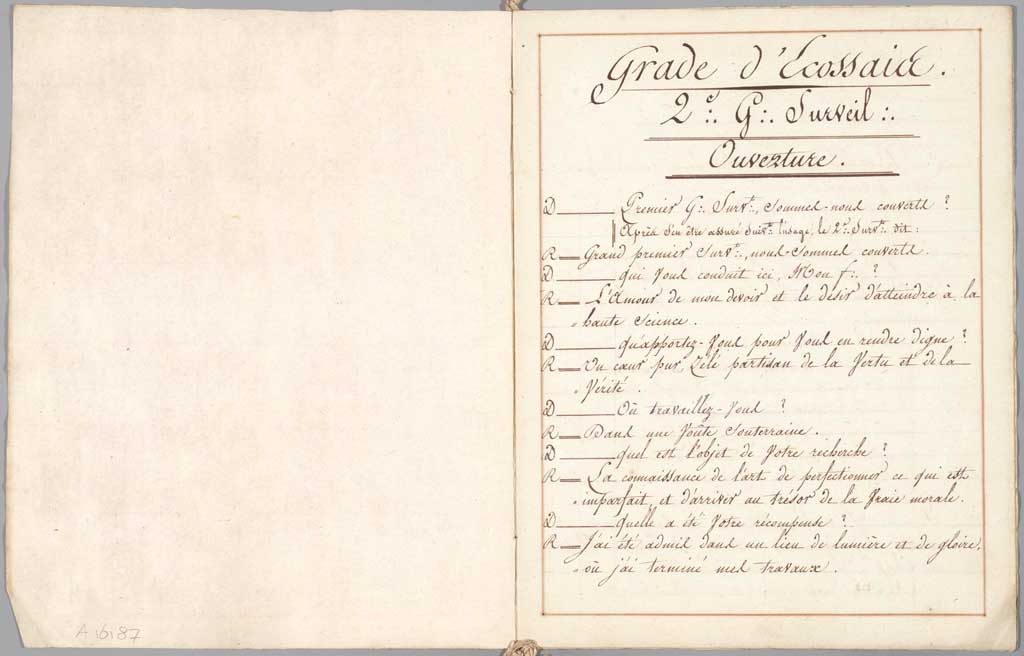 A 6187
Grade d'Ecossais.
2e∴ G∴ Surveil∴
Ouverture.
D ــــ Premier G∴ Surv^t∴, sommes-nous couverts ?
Après s'en être assuré suiv^t∴ l'usage, le 2e∴ Surv^t∴ dit :
R — Grand premier Surv^t∴, nous sommes couverts.
D — qui vous conduit ici, Mon f∴ ?
R — L'Amour de mon devoir et le désir d'atteindre à la
" haute science.
D — qu'apportez-vous pour vous en rendre digne ?
R — Un cœur pur, Zélé partisan de la Vertu et de la
" Vérité.
D — Où travaillez-vous ?
R — Dans une Voûte Souterraine.
D — quel est l'objet de Votre recherche ?
R — La connaissance de l'art de perfectionner ce qui est
" imparfait, et d'arriver au trésor de la Vraie morale.
D — quelle a été Votre récompense ?
R — J'ai été admis dans un lieu de lumière et de gloire,
" où j'ai terminé mes travaux.